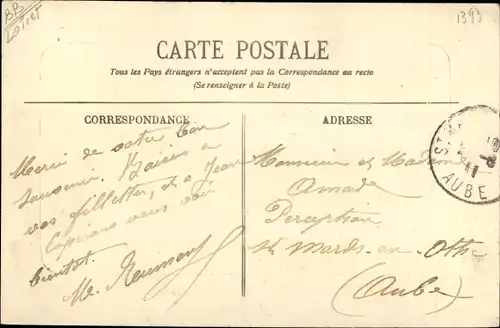 BB
Loiret
1393
CARTE POSTALE
Tous les Pays étrangers n'acceptent pas la Correspondance au recto
(Se renseigner à la Poste)
CORRESPONDANCE
Merci de votre bon
souvenir. Baisers a
vos fillettes, et a Jean
Espérons vous voir
bientôt.
ADRESSE
Monsieur et Madame
Amade
Perception
St Mards-en-Othe
(Aube)
ST M
AUBE